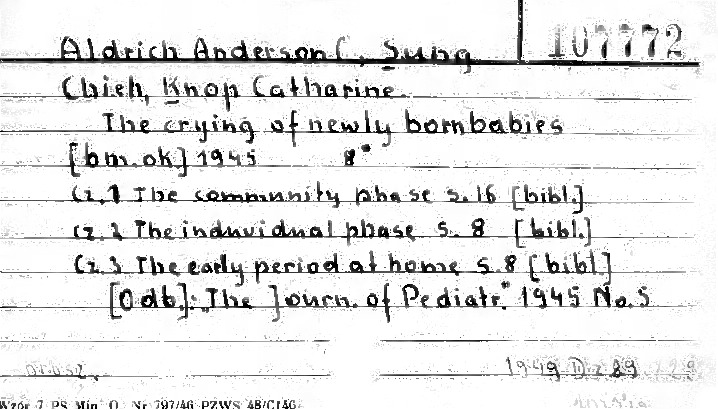 Aldrich Anderson C., Sung 107772
Chieh, Knop Catharine.
The crying of newly bornbabies
[bm. ok] 1945 8°
Cz. 1 The community phase s. 16 [bibl.]
Cz. 2 The induvidual phase s. 8 [bibl.]
Cz. 3 The early period at home s. 8 [bibl]
[Odb]: "The Journ. of Pediatr." 1945 No. 5
1949 D z 89
Wzór 7 PS Min. O. Nr 797/46 PZWS 48/C146